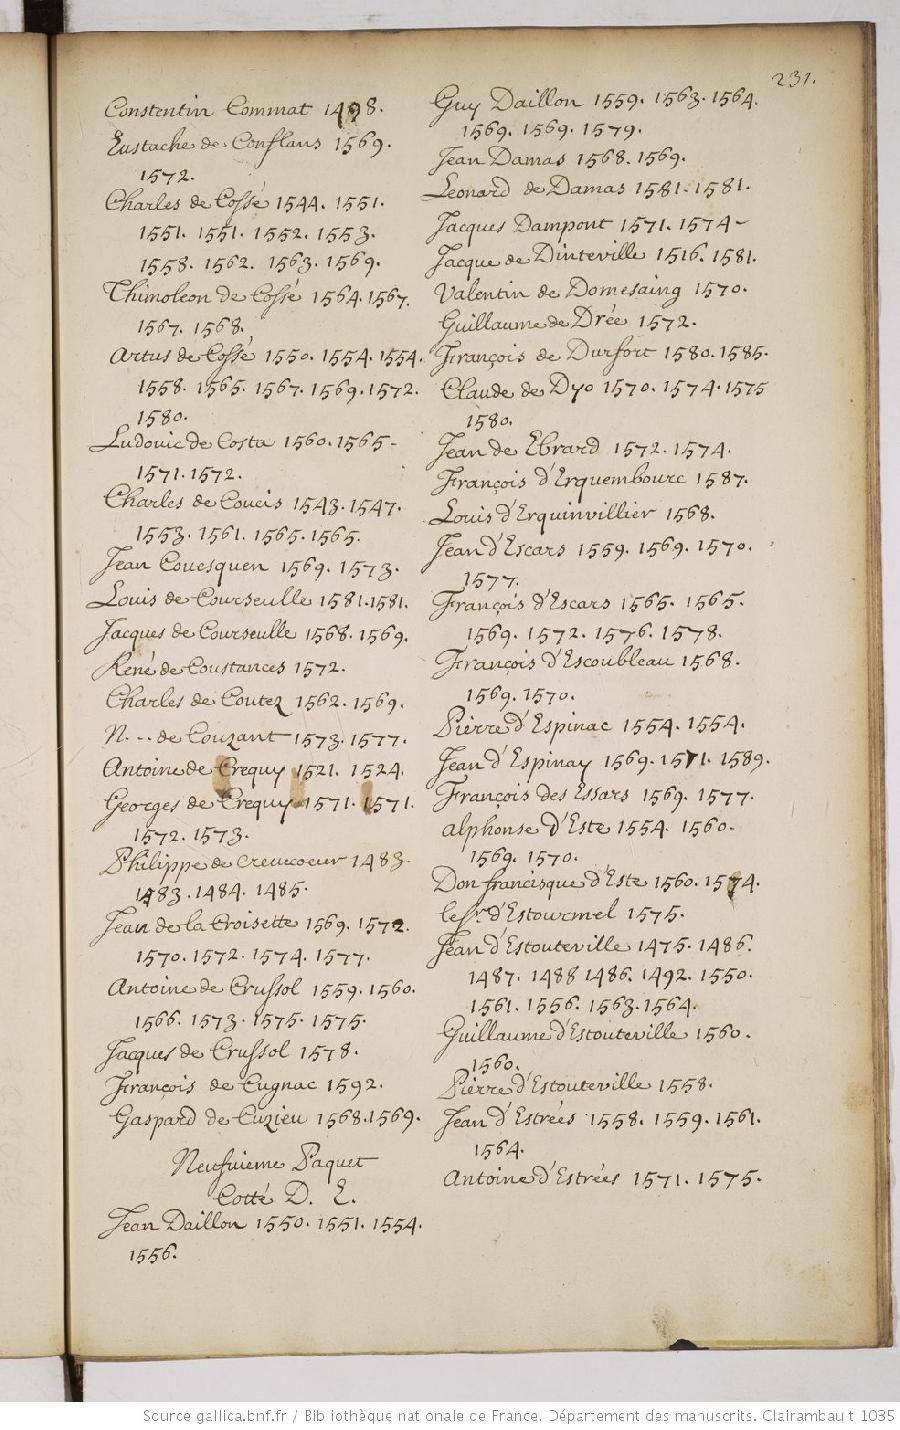 231.
Constentin Commat 1498.
Eustache de Conflans 1569.
1572.
Charles de Cossé 1544. 1551.
1551. 1551. 1552. 1553.
1558. 1562. 1563. 1569.
Thimoleon de Cossé 1564. 1567.
1567. 1568.
Artus de Cossé 1550. 1554. 1554.
1558. 1565. 1567. 1569. 1572.
1580.
Ludovic de Costa 1560. 1565-
1571. 1572.
Charles de Coucis 1543. 1547.
1553. 1561. 1565. 1565.
Jean Couesquen 1569. 1573.
Louis de Courseulle 1581. 1581.
Jacques de Courseulle 1568. 1569.
René de Coustances 1572.
Charles de Coutez 1562. 1569.
N. -- de Couzant 1573. 1577.
Antoine de Crequy 1521. 1524.
Georges de Crequy 1571. 1571.
1572. 1573.
Philippe de Crevecoeur 1483.
1483. 1484. 1485.
Jean de la Croisette 1569. 1572.
1570. 1572. 1574. 1577.
Antoine de Crussol 1559. 1560.
1566. 1573. 1575. 1575.
Jacques de Crussol 1578.
François de Cugnac 1592.
Gaspard de Cuzieu 1568. 1569.
Neufuieme Paquet
Cotté D. E.
Jean Daillon 1550. 1551. 1554.
1556.
Guy Daillon 1559. 1563. 1564.
1569. 1569. 1579.
Jean Damas 1568. 1569.
Leonard de Damas 1581. 1581.
Jacques Dampont 1571. 1574-
Jacque de Dinteville 1516. 1581.
Valentin de Domesaing 1570.
Guillaume de Drée 1572.
François de Durfort 1580. 1585.
Claude de Dyo 1570. 1574. 1575
1580.
Jean de Ebrard 1572. 1574.
François d'Erquembourc 1587.
Louis d'Erquinvillier 1568.
Jean d'Escars 1559. 1569. 1570.
1577.
François d'Escars 1565. 1565.
1569. 1572. 1576. 1578.
François d'Escoubleau 1568.
1569. 1570.
Pierre d'Espinac 1554. 1554.
Jean d'Espinay 1569. 1571. 1589.
François des Essars 1569. 1577.
Alphonse d'Este 1554. 1560.
1569. 1570.
Don francisque d'Este 1560. 1574.
le Sr. d'Estourmel 1575.
Jean d'Estouteville 1475. 1486.
1487. 1488 1486. 1492. 1550.
1561. 1556. 1563. 1564.
Guillaume d'Estouteville 1560.
1560.
Pierre d'Estouteville 1558.
Jean d'Estrées 1558. 1559. 1561.
1564.
Antoine d'Estrées 1571. 1575.
Source gallica.bnf.fr / Bibliothèque nationale de France. Département des manuscrits. Clairambault 1035